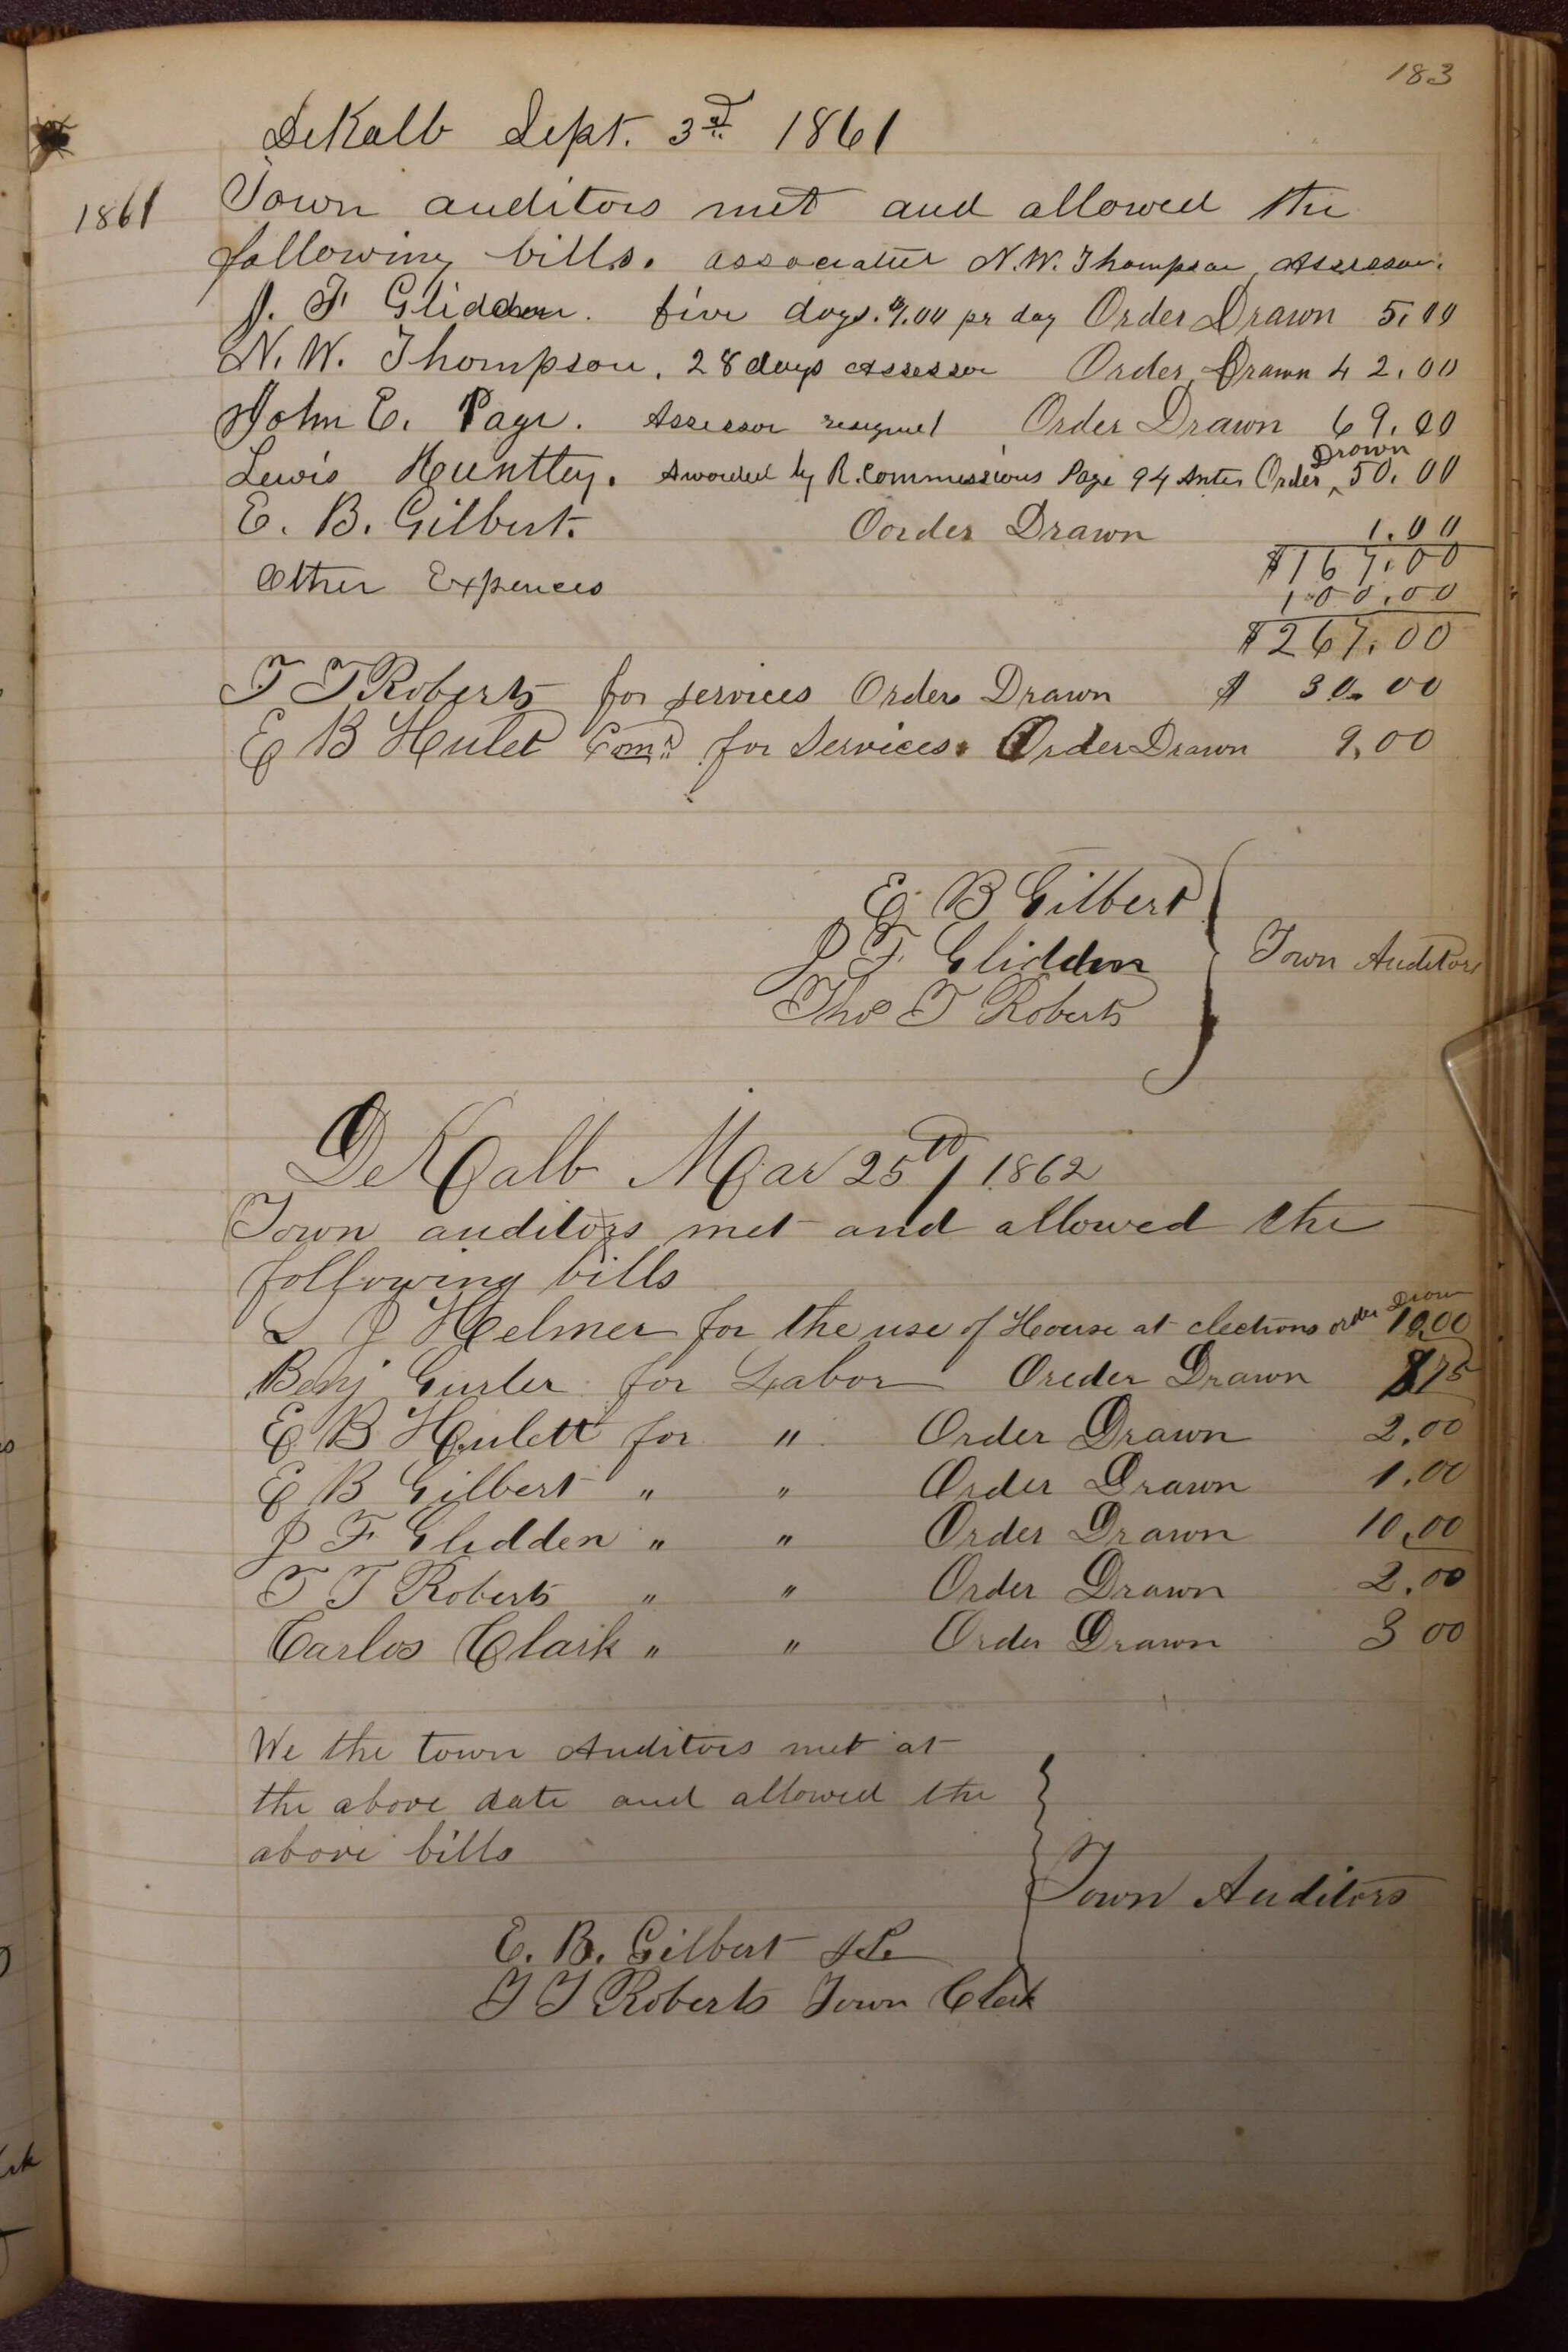 183
DeKalb Sept. 3d 1861
1861
Town auditors met and allowed the
following bills. N.W. Thompson, Assessor.
J. F Glidden. five days. $1.00 pr day Order Drawn 5.00
N. W. Thompson. 28 days Assessor Order Drawn 42.00
John E. Page. Assessor resigned Order Drawn 69.00
Lewis Huntley. Awarded by R. Commissions Page 94 Order Drawn 50.00
E. B. Gilbert. Oorder Drawn 1.00
$167.00
Other Expences 100.00
$267.00
T T Roberts for services Order Drawn $ 30.00
E B Hulet Comr for Services. Order Drawn 9.00
E B Gilbert
J F Glidden Town Auditors
Thos T Roberts
DeKalb Mar 25th / 1862
Town auditors met and allowed the
following bills
J Helmer for the use of House at elections order Drawn 10.00
Benj Gurler for Labor Oreder Drawn 175
E B Hulett for " Order Drawn 2.00
E B Gilbert " " Order Drawn 1.00
J F Glidden " " Order Drawn 10.00
T T Roberts " " Order Drawn 2.00
Carlos Clark " " Order Drawn 3 00
We the town Auditors met at
the above date and allowed the
above bills
Town Auditors
E. B. Gilbert
T T Roberts Town Clerk